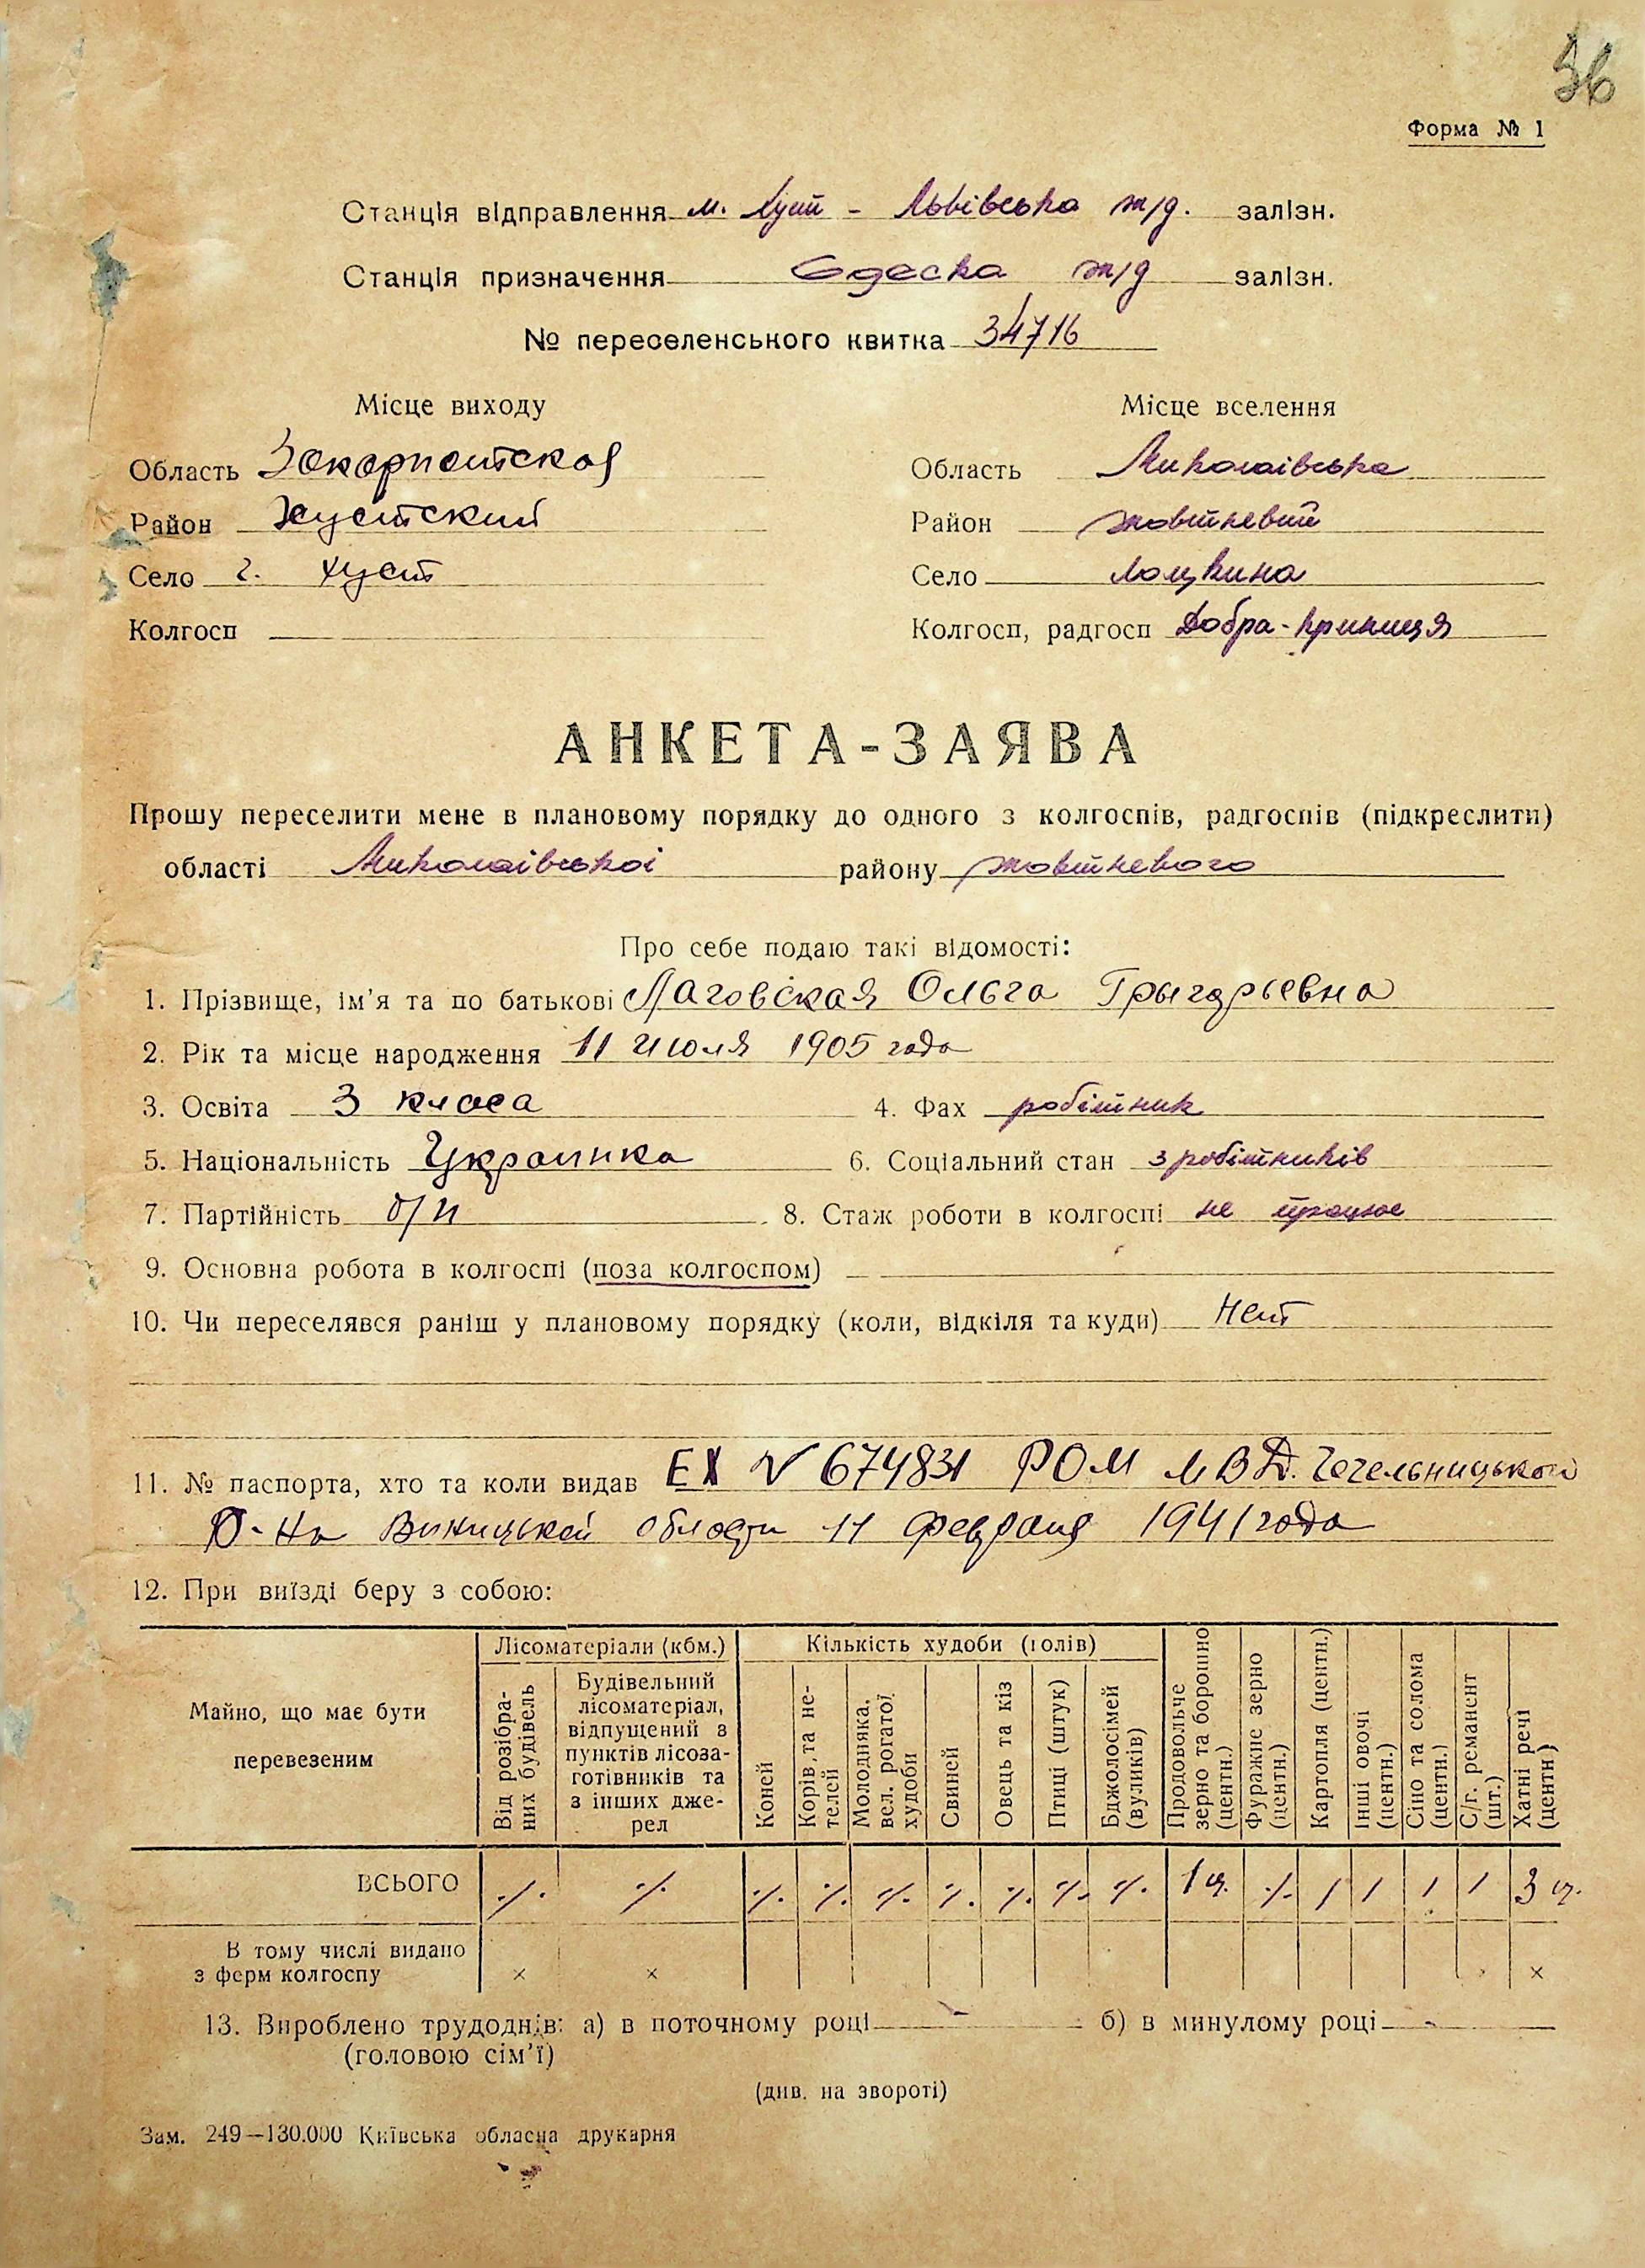 36
Форма № 1
Станція відправлення м. Хуст - Львівська ж/д. залізн.
Станція призначення Одеська ж/д залізн.
№ переселенського квитка 34716
Місце виходу Місце вселення
Область Закарпатская Область Миколаівська
Район Хустский Район Жовтневий
Село г. Хуст Село Лоцкина
Колгосп Колгосп, радгосп Добра-Криниця
АНКЕТА-ЗАЯВА
Прошу переселити мене в плановому порядку до одного з колгоспів, радгоспів (підкреслити)
області Миколаівськоі району Жовтневого
Про себе подаю такі відомості:
1. Прізвище, ім'я та по батькові Лаговская Ольга Грыгорьевна
2. Рік та місце народження 11 июля 1905 года
3. Освіта 3 класа 4. Фах робітник
5. Національність Украинка 6. Соціальний стан з робітників
7. Партійність б/п 8. Стаж роботи в колгоспі не працює
9. Основна робота в колгоспі (поза колгоспом) —
10. Чи переселявся раніш у плановому порядку (коли, відкіля та куди) Нет
11. № паспорта, хто та коли видав № 674831 РОМ МВД. Чечельницького
Р-на Виницькой области 11 февраля 1941 года
12. При виїзді беру з собою:
Майно, що має бути перевезеним
Лісоматеріали (кбм.)
Від розібраних будівель
Будівельний лісоматеріал, відпущений з пунктів лісозаготівників та з інших джерел
Кількість худоби (голів)
Коней
Корів та нетелей
Молодняка, вел. рогатої худоби
Свиней
Овець та кіз
Птиці (штук)
Бджолосімей (вуликів)
Продовольче зерно та борошно (центн.)
Фуражне зерно (центн.)
Картопля (центн.)
Інші овочі (центн.)
Сіно та солома (центн.)
С/г. реманент (шт.)
Хатні речі (центн)
ВСЬОГО ·/· ·/· ·/· ·/· ·/· ·/· ·/· ·/· ·/· 1 ц. ·/· / / / / 3 ц.
В тому числі видано
з ферм колгоспу × × ×
13. Вироблено трудоднів: а) в поточному році — б) в минулому році -
(головою сім'ї)
(див. на звороті)
Зам. 249—130.000 Київська обласна друкарня